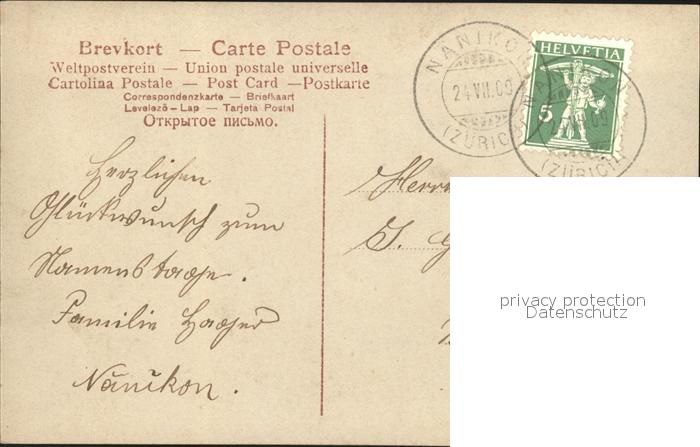 Brevkort — Carte Postale
Weltpostverein — Union postale universelle
Cartolina Postale — Post Card —Postkarte
Correspondenzkarte — Briefkaart
Levelező-Lap — Tarjeta Postal
Открытое письмо.
NÄNIKON
24.VII.09
(ZÜRICH)
HELVETIA
5
(ZÜRICH)
Herzlichen
Glückwunsch zum
Namenstage.
Familie Hager
Nänikon.
Herrn
J. G
privacy protection
Datenschutz